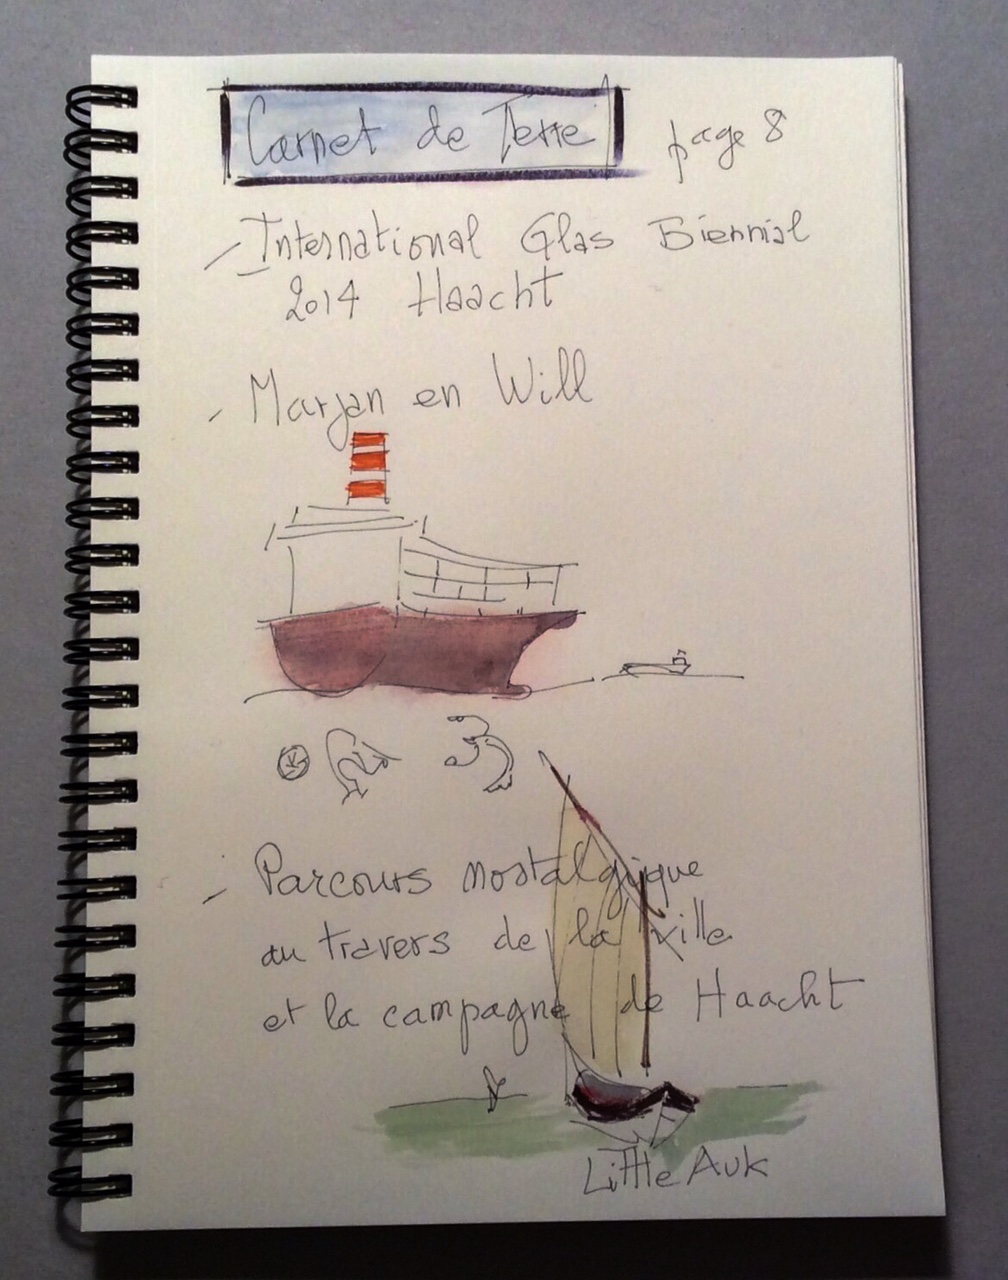 Carnet de Terre
page 8
- International Glas Biennial
2014 Haacht
- Marjan en Will
- Parcours nostalgique
au travers de la ville
et la campagne de Haacht
Little Auk